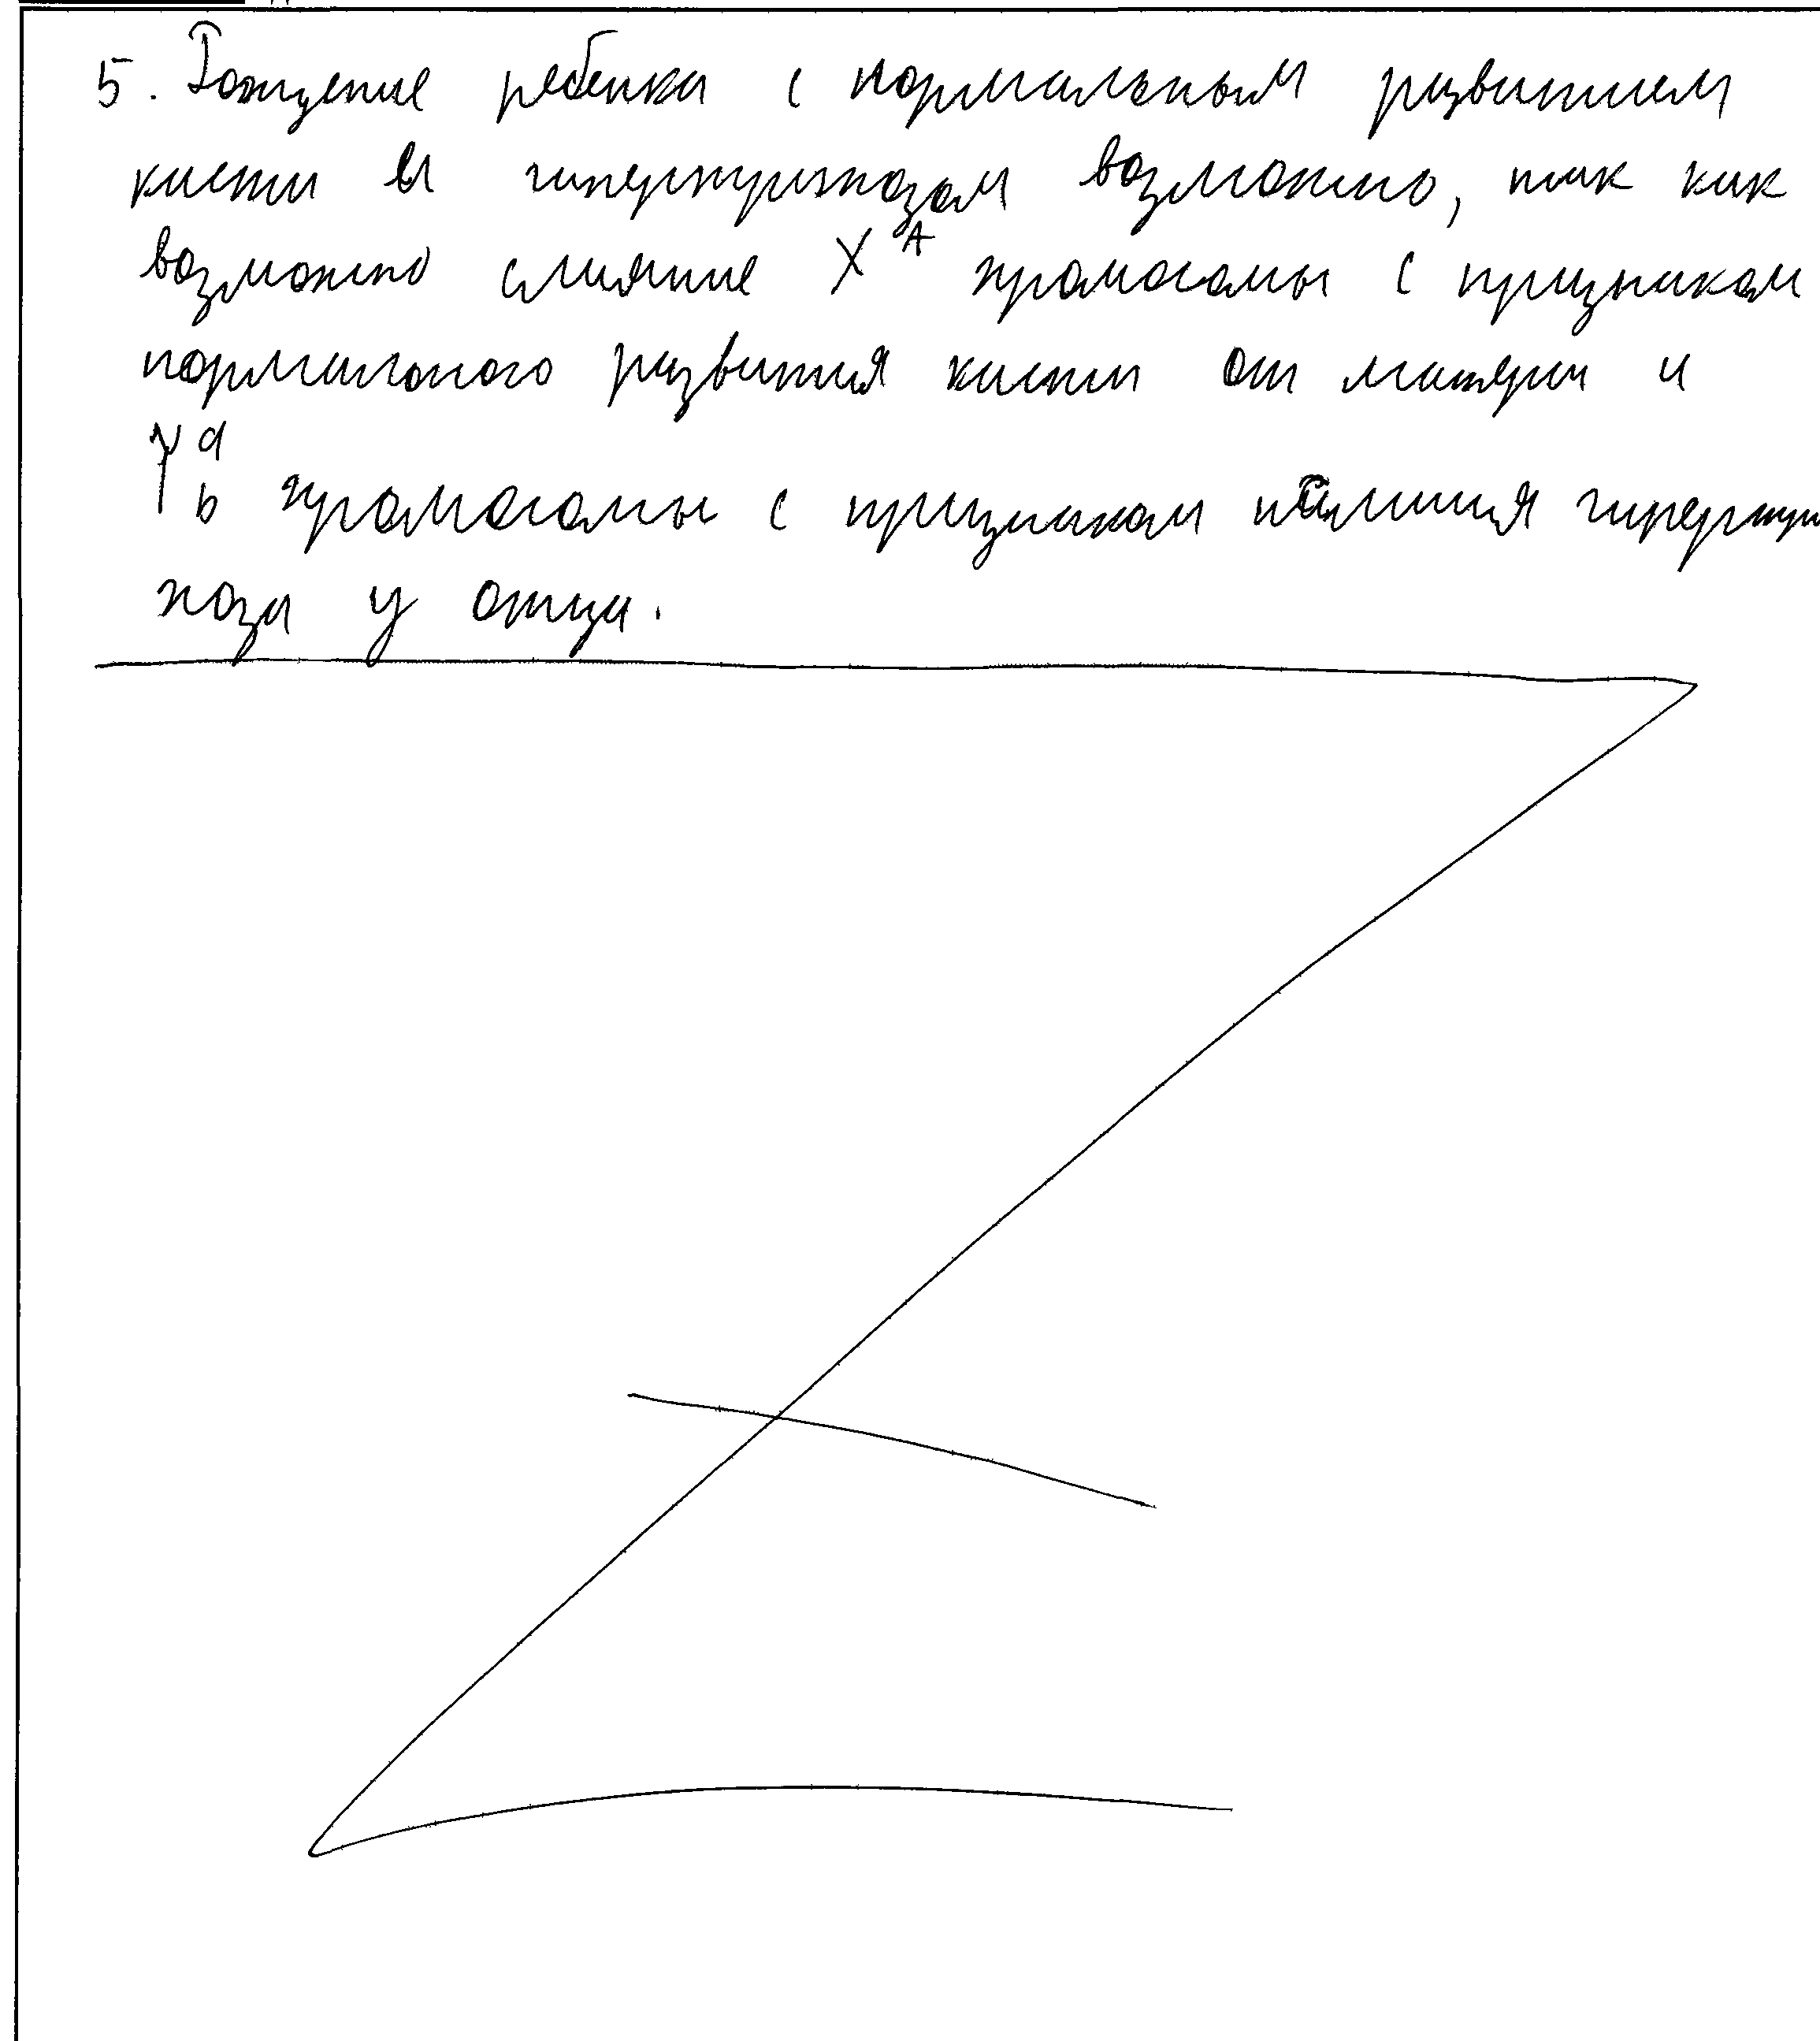 5. Рождение ребенка с нормальным развитием
кисти и гипертрихозом возможно, так как
возможно слияние X^A хромосомы с признаком
нормального развития кисти от матери и
Y^a_b хромосомы с признаком наличия гипертри
хоза у отца.